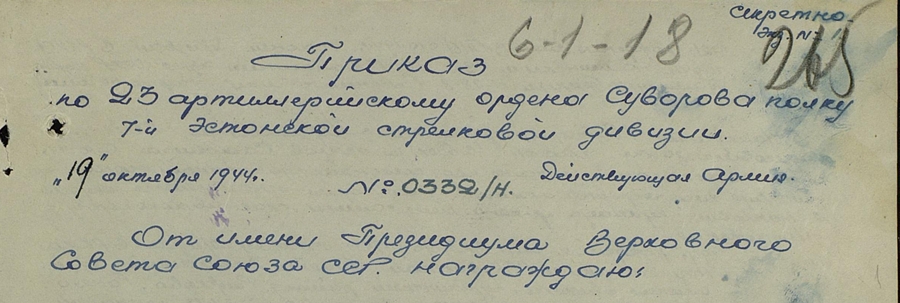 Секретно.
Экз. № 1
6-1-18
265
Приказ
по 23 артиллерийскому ордена Суворова полку
7-й Эстонской стрелковой дивизии.
„19" октября 1944г. №: 0332/н. Действующая Армия.
От имени Президиума Верховного
Совета Союза ССР. награждаю: